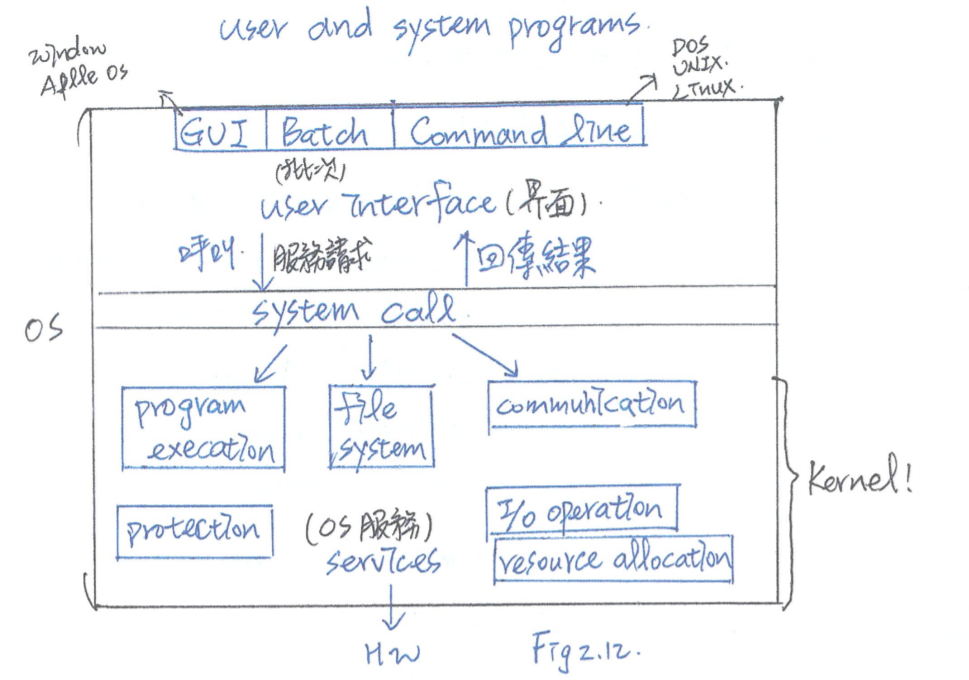 user and system programs.
Window
Aplle OS
DOS
UNIX.
LINUX.
GUI Batch Command line
(批次)
user interface (界面).
呼叫. 服務請求 回傳結果
OS
system call.
program
execation
file
system
communication
Kernel!
protection
(OS 服務)
services
I/o operation
resource allocation
HW
Fig 2.12.